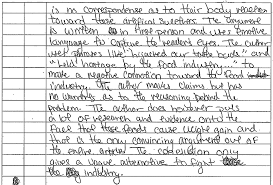 is in correspondense as to thair body reaches
toward those artifical sweeteners. The argument
is written in third person and uses emotive
language to capture to readers eyes. The author
uses phrases like "hijacked our taste buds" and
"held hostage by the food industry..." to
make a negative connotation toward the food
industry. The author makes claims but has
no as to the reasoning behind the
problem. The author does however puts
a lot of research and evidence onto the
fact that these foods cause weight gain and
that is the only convincing argument out of
the entire article. The conclusion only
gives a vague alternative to fight
the industry.